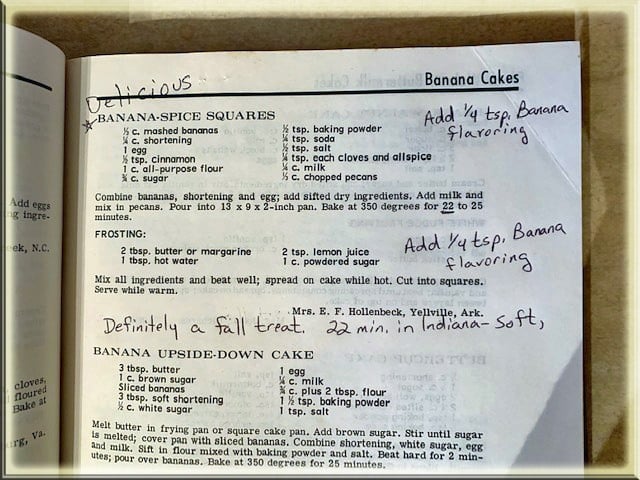 Add eggs
ingre-
N.C.
cloves,
floured
Bake at
Va.
Banana Cakes
Delicious
BANANA-SPICE SQUARES
Add ¼ tsp. Banana
flavoring
½ c. mashed bananas
¼ c. shortening
1 egg
½ tsp. cinnamon
1 c. all-purpose flour
¾ c. sugar
½ tsp. baking powder
¼ tsp. soda
½ tsp. salt
¼ tsp. each cloves and allspice
¼ c. milk
½ c. chopped pecans
Combine bananas, shortening and egg; add sifted dry ingredients. Add milk and
mix in pecans. Pour into 13 x 9 x 2-inch pan. Bake at 350 degrees for 22 to 25
minutes.
FROSTING:
Add ¼ tsp. Banana
flavoring
2 tbsp. butter or margarine
1 tbsp. hot water
2 tsp. lemon juice
1 c. powdered sugar
Mix all ingredients and beat well; spread on cake while hot. Cut into squares.
Serve while warm.
Mrs. E. F. Hollenbeck, Yellville, Ark.
Definitely a fall treat. 22 min. in Indiana-Soft,
BANANA UPSIDE-DOWN CAKE
3 tbsp. butter
1 c. brown sugar
Sliced bananas
3 tbsp. soft shortening
½ c. white sugar
1 egg
¼ c. milk
¾ c. plus 2 tbsp. flour
1 ½ tsp. baking powder
1 tsp. salt
Melt butter in frying pan or square cake pan. Add brown sugar. Stir until sugar
is melted; cover pan with sliced bananas. Combine shortening, white sugar, egg
and milk. Sift in flour mixed with baking powder and salt. Beat hard for 2 min-
utes; pour over bananas. Bake at 350 degrees for 25 minutes.